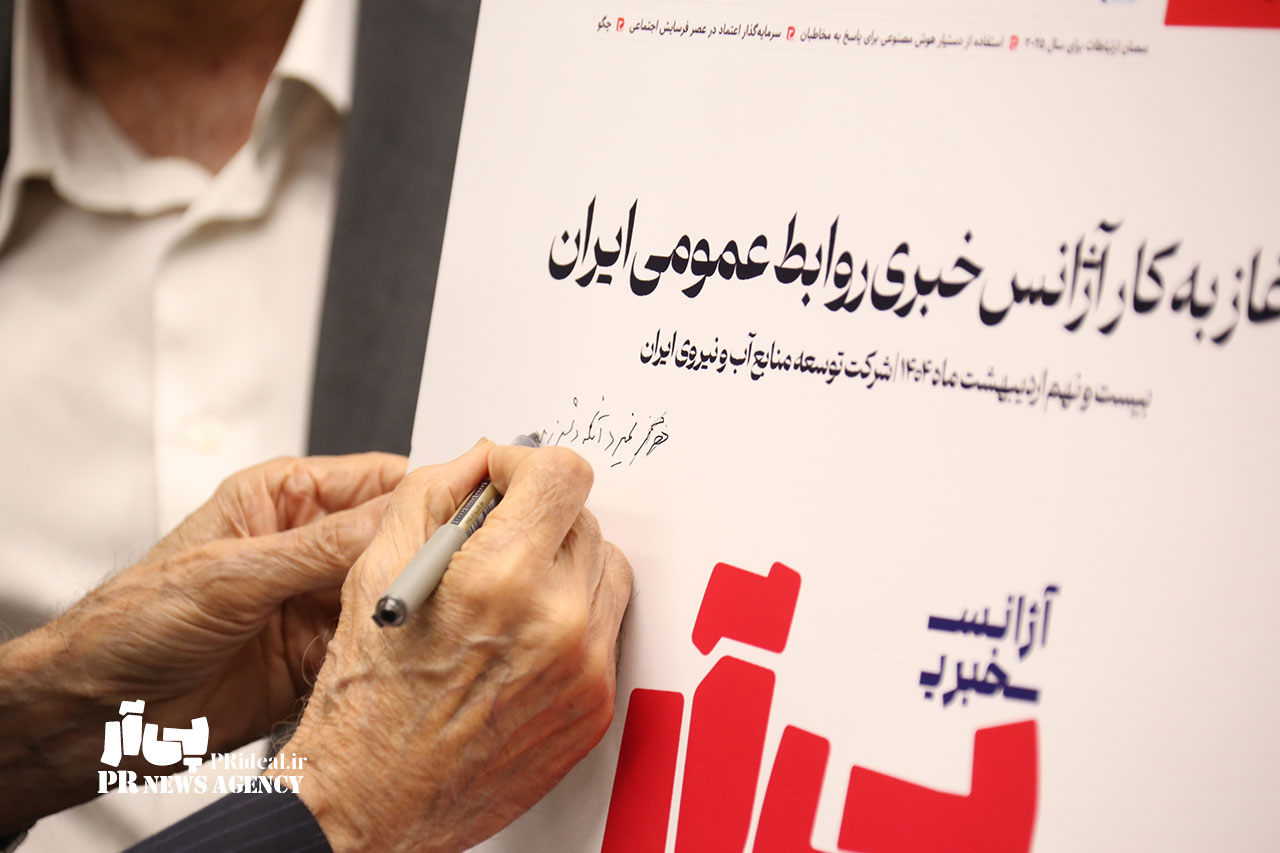 ارتباطات برای سال ۲۰۲۵ استفاده از دستیار هوش مصنوعی برای پاسخ به مخاطبان سرمایه‌گذار اعتماد در عصر فرسایش اجتماعی چگو
غاز به کار آژانس خبری روابط عمومی ایران
بیست و نهم اردیبهشت ماه ۱۴۰۴ / شرکت توسعه منابع آب و نیروی ایران
هرگز نمیرد آنکه دلش ز
آژانس
خبری
پی آر
پی آر
PRideal.ir
PR NEWS AGENCY